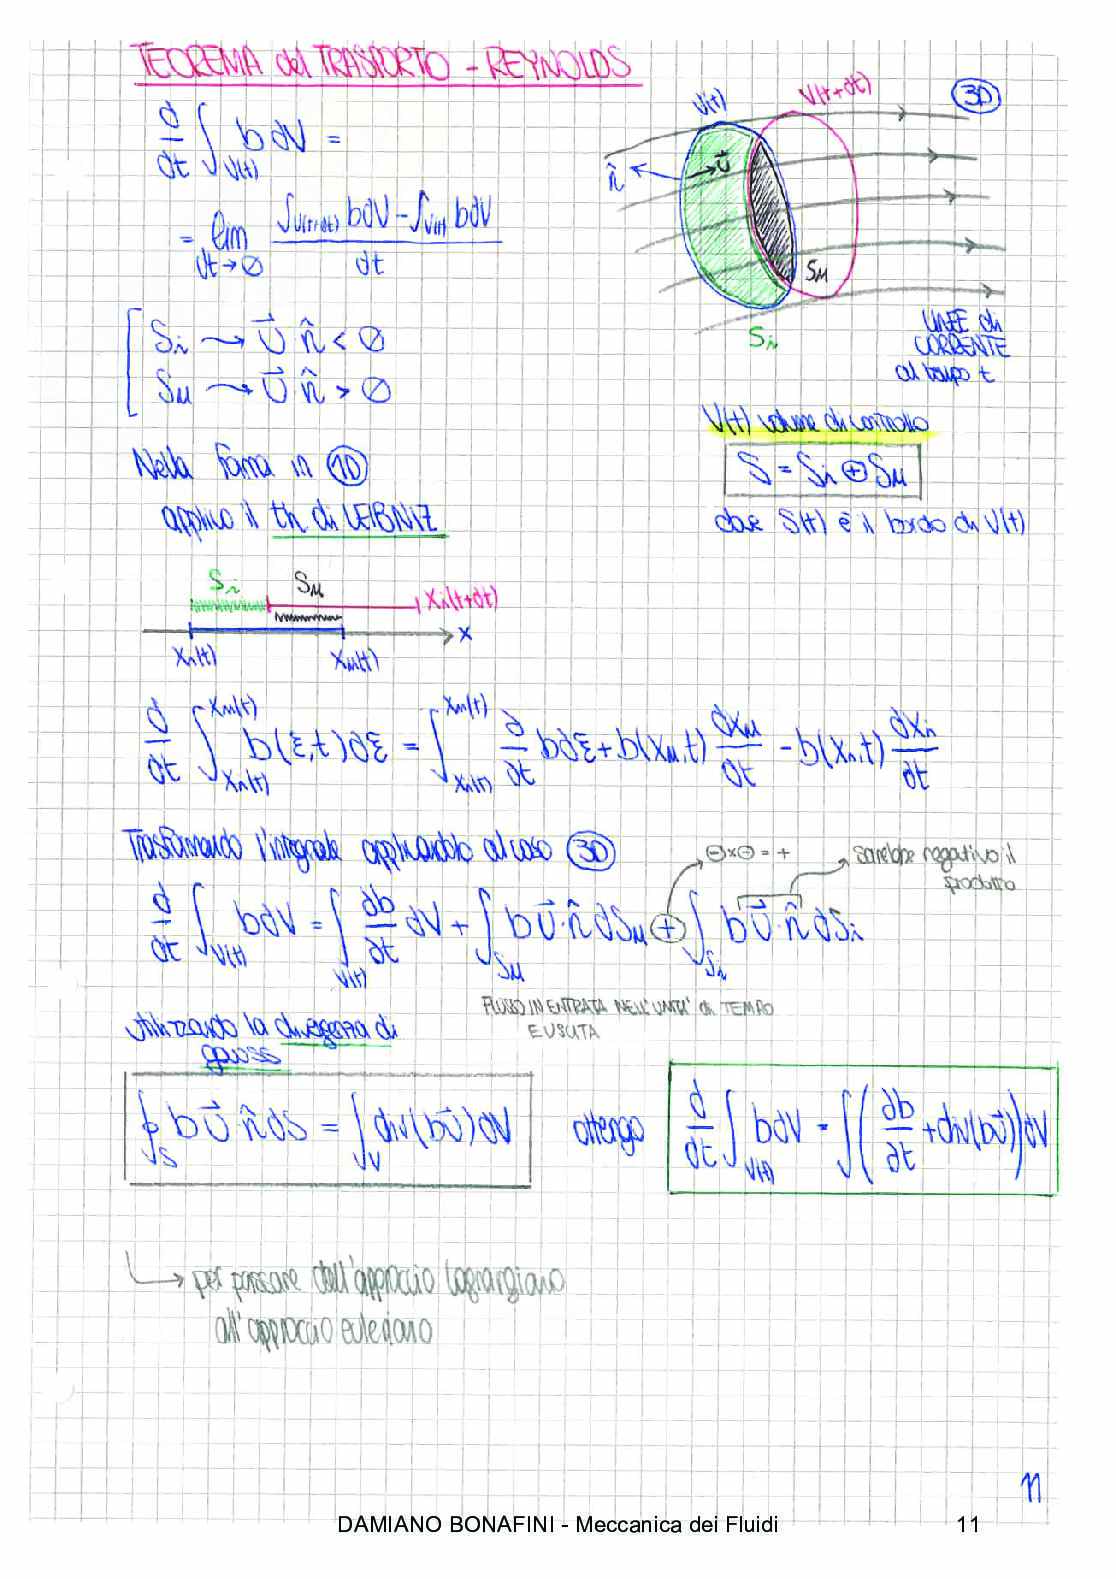 TEOREMA del TRASPORTO - REYNOLDS
d/dt ∫V(t) b dV =
= lim dt→∅ (∫V(t+dt) b dV - ∫V(t) b dV) / dt
V(t)
V(t+dt)
3D
n̂
v⃗
Su
Si
LINEE di
CORRENTE
al tempo t
Si → v⃗ n̂ < ∅
Su → v⃗ n̂ > ∅
V(t) volume di controllo
S = Si ⊕ Su
dove S(t) è il bordo di V(t)
Nella forma in 1D
applico il th di LEIBNIZ
Si
Su
Xi(t+dt)
x
Xi(t)
Xu(t)
d/dt ∫Xi(t)^Xu(t) b(ξ,t)dξ = ∫Xi(t)^Xu(t) ∂/∂t b dξ + b(Xu,t) dXu/dt - b(Xi,t) dXi/dt
Trasformando l'integrale applicandolo al caso 3D
⊖x⊖ = +
sarebbe negativo il
prodotto
d/dt ∫V(t) b dV = ∫V(t) ∂b/∂t dV + ∫Su b v⃗·n̂ dSu ⊕ ∫Si b v⃗·n̂ dSi
FLUSSO IN ENTRATA NELL'UNITA' di TEMPO
E USCITA
utilizzando la divergenza di
gauss
∮S b v⃗ n̂ dS = ∫V div(b v⃗) dV
ottengo
d/dt ∫V(t) b dV = ∫(∂b/∂t + div(b v⃗)) dV
→ per passare dall'approccio lagrangiano
all'approccio euleriano
11
DAMIANO BONAFINI - Meccanica dei Fluidi
11